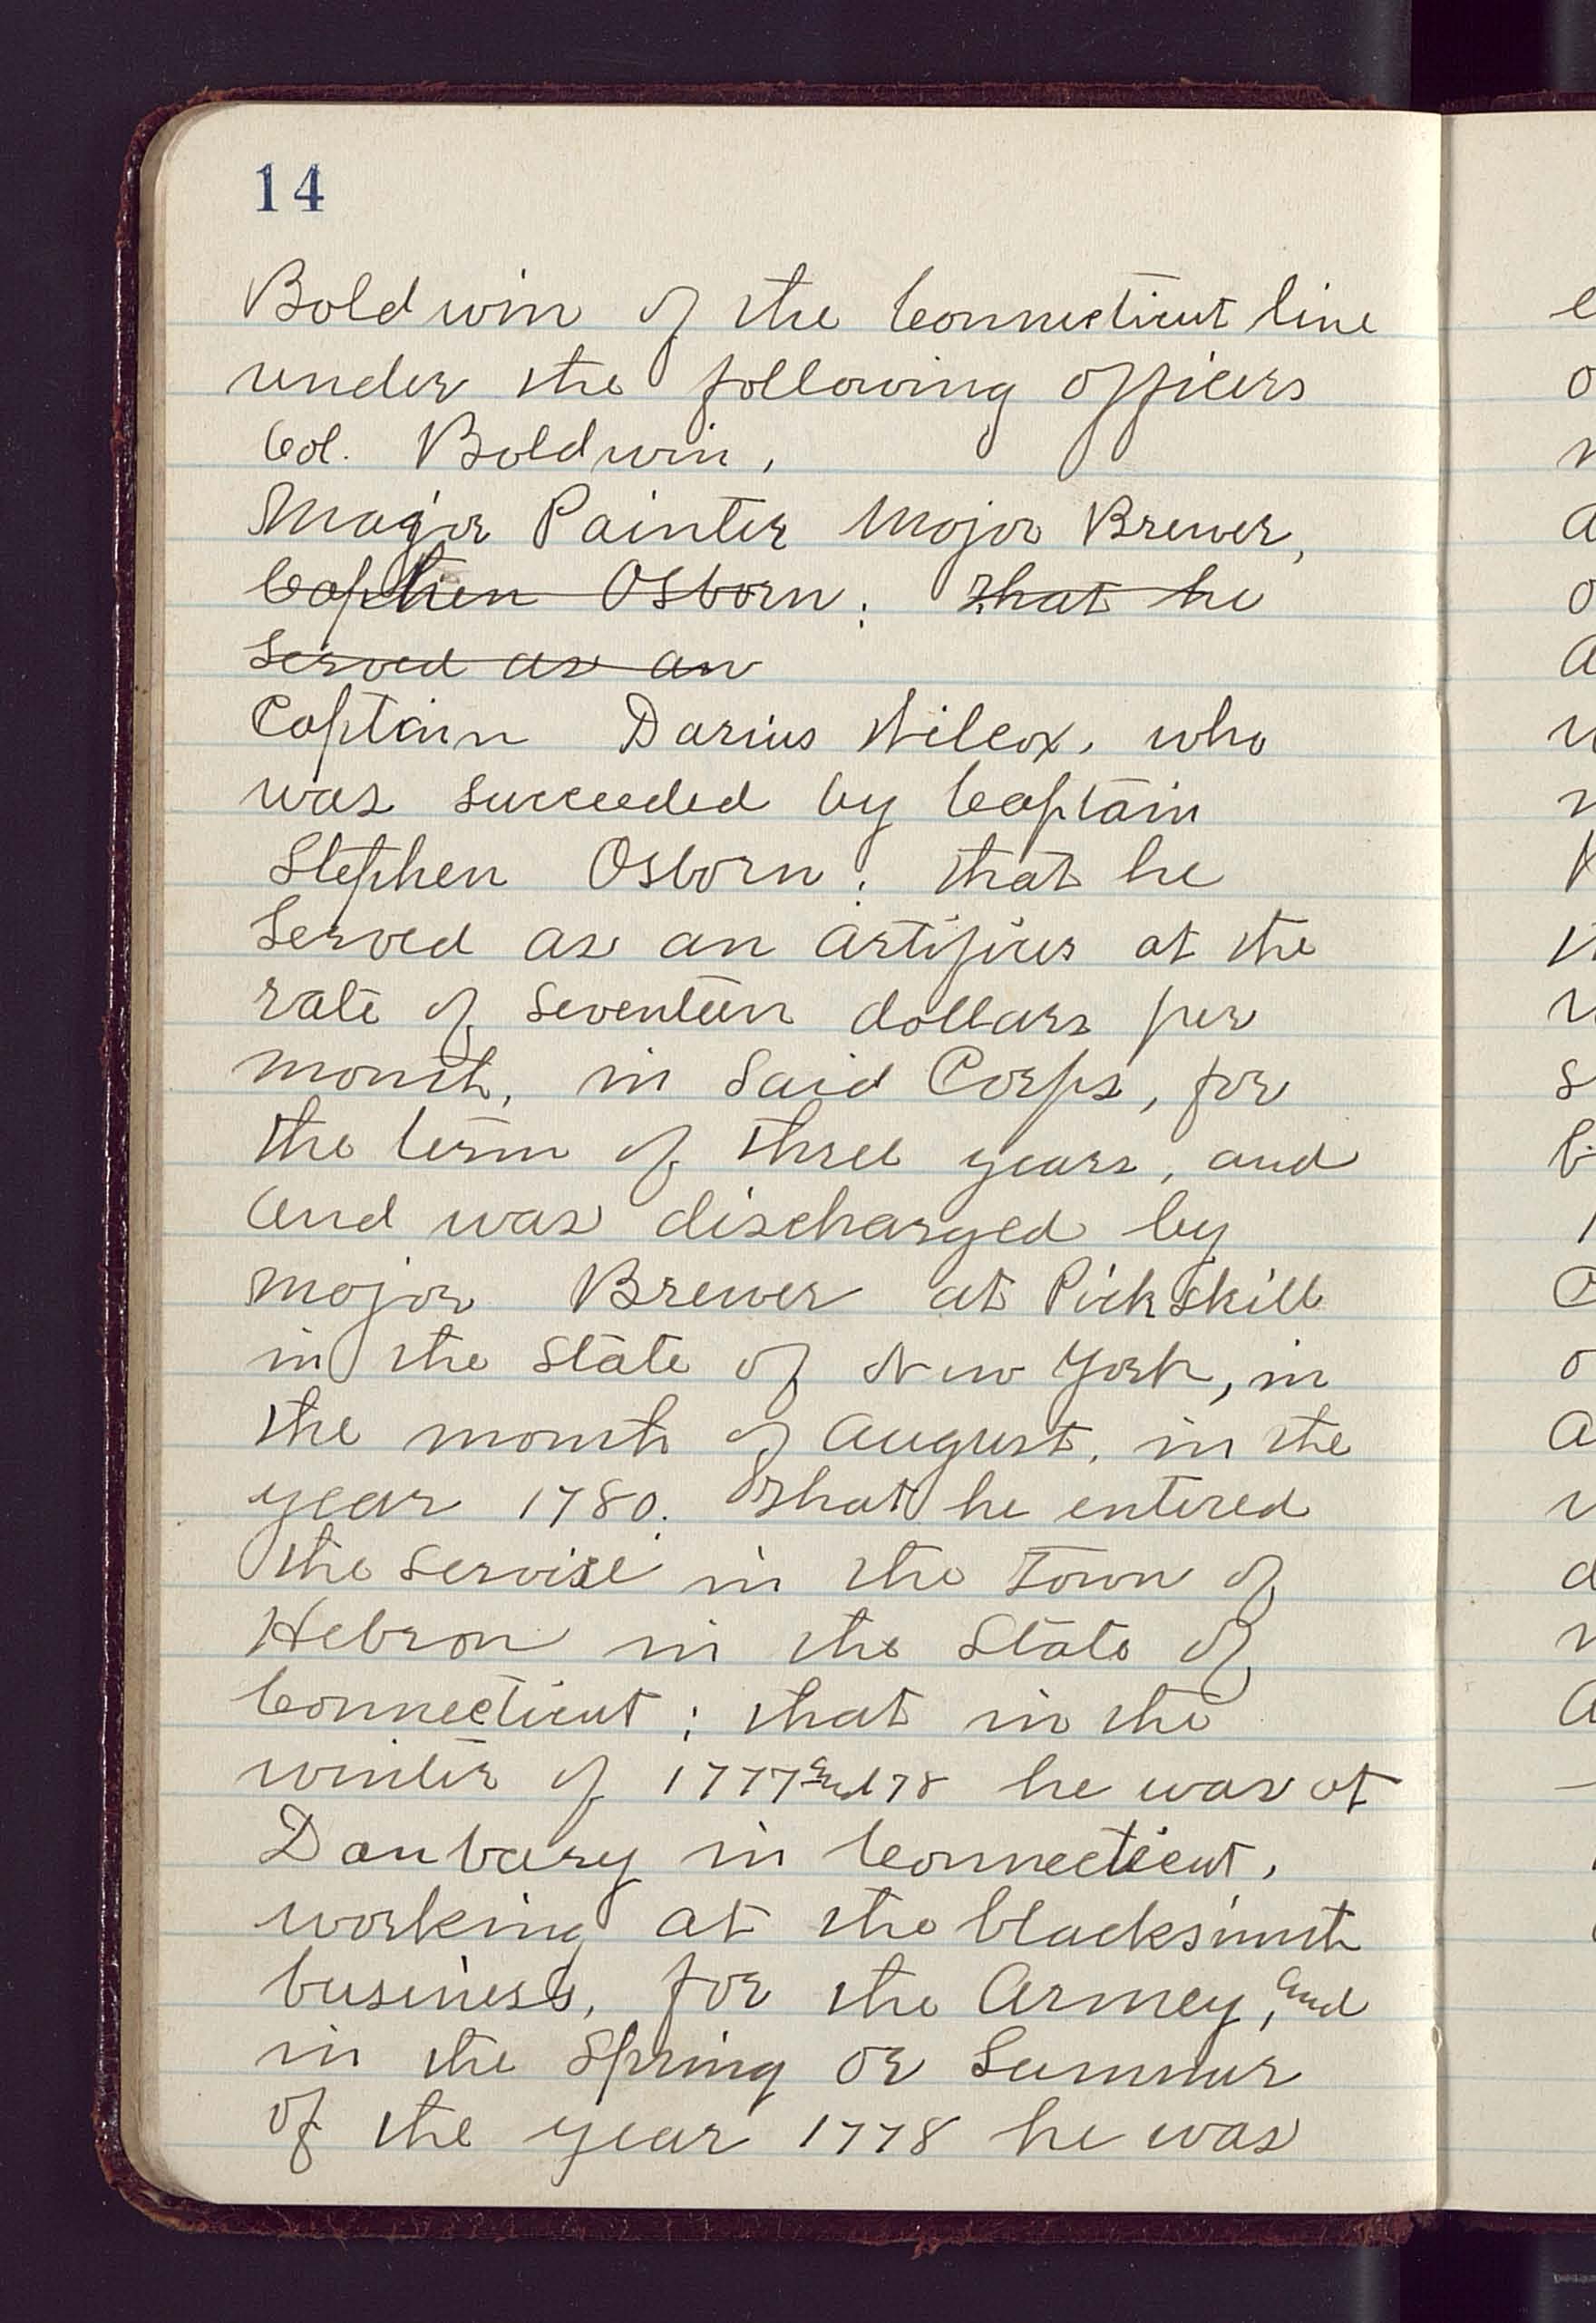 14
Boldwin of the Connecticut line
under the following officers
Col. Boldwin,
Major Painter Major Brewer,
~~Cophen Osborn; that he~~
~~Served as an~~
Captain Darius Wilcox, who
was succeeded by Captain
Stephen Osborn; that he
Served as an artificer at the
rate of seventeen dollars per
month, in said Corps, for
the term of three years, and
and was discharged by
Major Brewer at Pickskill
in the State of New York, in
the month of August, in the
year 1780. That he entered
the service in the Town of
Hebron in the State of
Connecticut; that in the
winter of 1777 and 78 he was at
Danbury in Connecticut,
working at the blacksmith
business, for the Armey, and
in the Spring or Summer
of the year 1778 he was